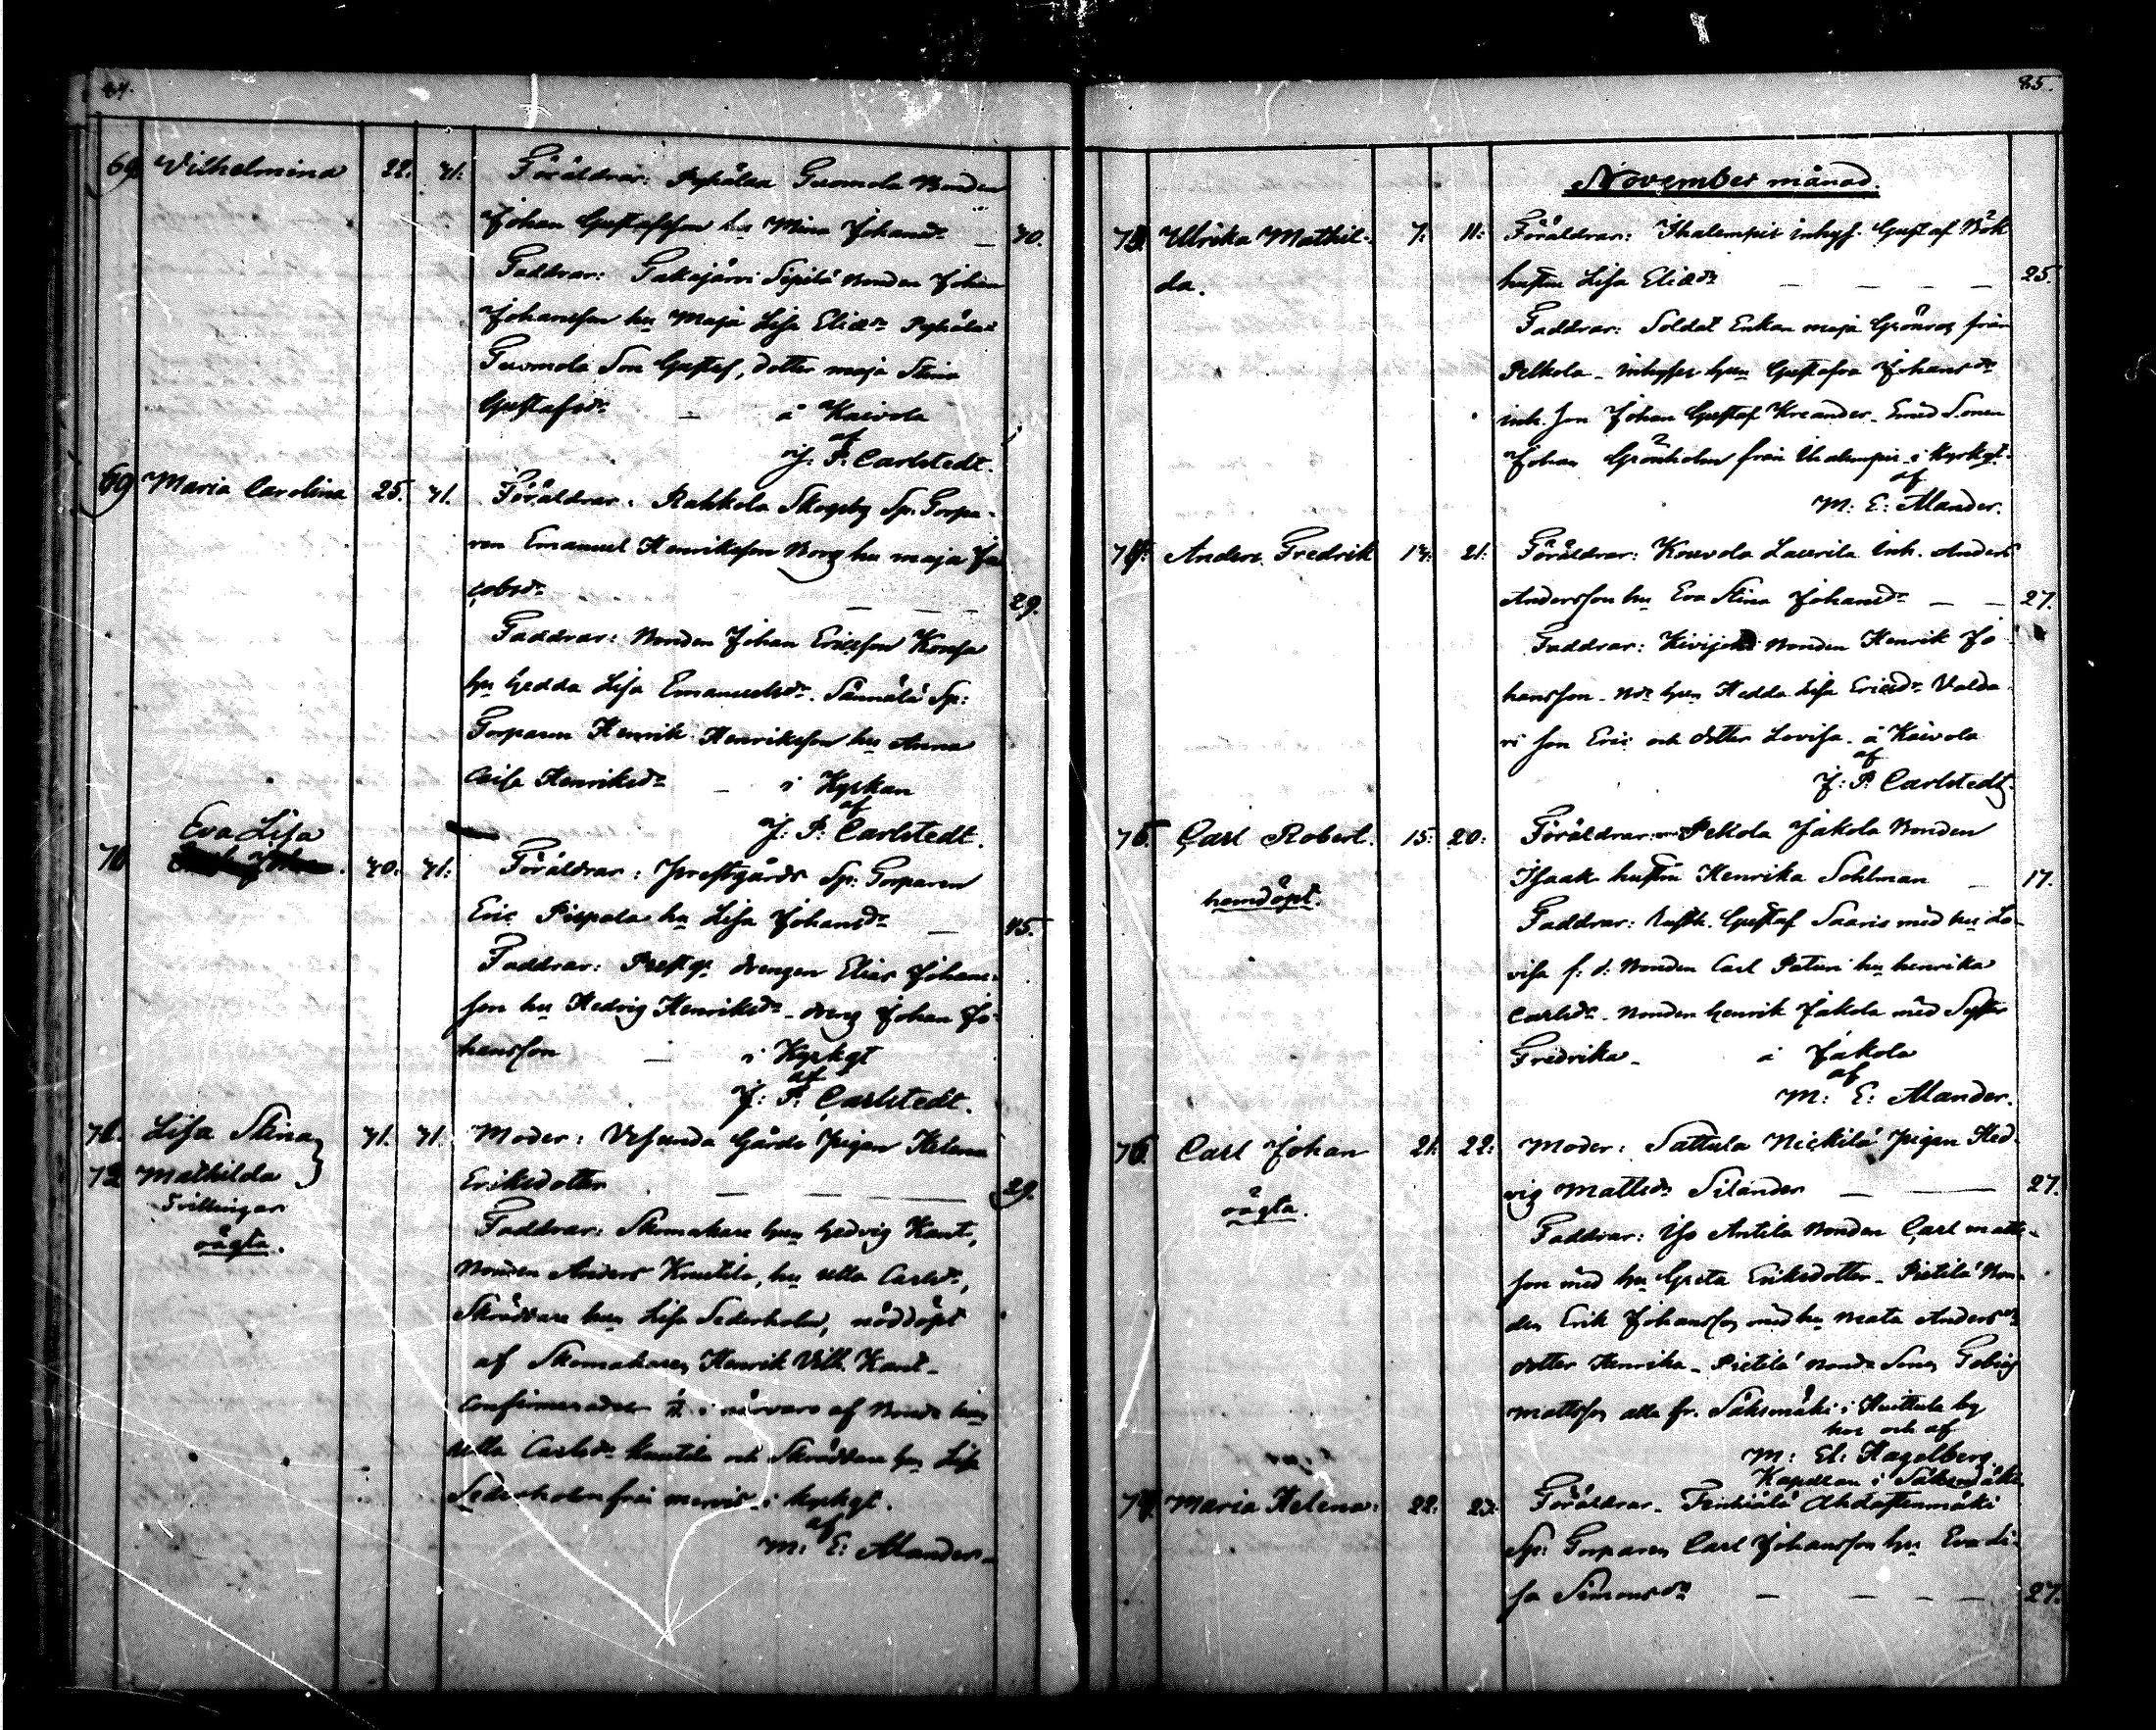 84.
69. Wilhelmina 22. 31. Föräldrar: Pyhälax Tuomola Bonden
Johan Gustafsson hu Mina Johansdr — 40.
Faddrar: Takajärvi Sipilä Bonden Johan
Johansson hu Maja Lisa Eliedr Pyhälax
Tuomola Son Gustaf, dotter maja Stina
Gustafsdr — å Kaivola
af
J. P. Carlstedt.
69 Maria Carolina 25. 31. Föräldrar: Rahkola Skogsby Sp. Torpa-
ren Emanuel Henriksson Borg hu maja Ja
cobsdr — — — 29.
Faddrar: Bonden Johan Ericsson
hu Hedda Lisa Emanuelsdr. Sp:
Torparen Henrik Henriksson hu Anna
Caisa Henriksdr — i Kyrkan
af
J: P: Carlstedt.
Eva Lisa
70 30: 31: Föräldrar: Prestgårds Sp: Torparen
Eric Pispala hu Lisa Johansdr — 45.
Faddrar: Prestgs drengen Elias Johans-
son hu Hedvig Henriksdr - dreng Johan Jo-
hansson — i Kyrkgt
af
J: P: Carlstedt.
71. Lisa Stina 31. 31. Moder: Vesunda Gårds Pigan Helena
72 Mathilda Eriksdotter — — — 29.
Tvillingar Faddrar: Skomakare hun Hedvig Kant,
oägta. Bonden Anders Knutila, hu Ulla Carlsdr,
Skräddare hun Lisa Sederholm, nöddöpt
af Skomakaren Henrik Vilh. Kant-
Confirmerades i närvaro af Bonde hun
Ulla Carlsdr Knutila och Skräddare hun Lisa
Sederholm från i kyrkgt.
af
M: E: Alander.
85.
November månad.
73. Ulrika Mathil- 7: 11: Föräldrar: Ihalempis inhys. Gustaf Bök
da. hustru Lisa Eliedr — — — — 25.
Faddrar: Soldat Enkan maja Grönros från
Pelkola - inhyses hun Gustafva Johansdr
inh. son Johan Gustaf Kreander - Smed Sonen
Johan Grönholm från Ihalempis i Kyrkgt.
af
M: E: Alander.
74. Anders Fredrik 14: 21: Föräldrar: Kouvola Laurila Inh. Anders
Andersson hu Eva Stina Johansdr — — 27.
Faddrar: Kivijoki Bonden Henrik Jo
hansson - Bde hun Hedda Lisa Ericsdr Valda
ri son Eric och dotter Lovisa. å Kaivola
af
J: P: Carlstedt.
75. Carl Robert. 15: 20: Föräldrar: Pelkola Jakola Bonden
Isaak hustru Henrika Sohlman — 17.
hemdöpt. Faddrar: Rusth. Gustaf Saaris med hu Lo-
visa f: d: Bonden Carl Paturi hu henrika
Carlsdr - Bonden Henrik Jakola med Syster
Fredrika - å Jakola
af
M: E: Alander.
76. Carl Johan 21. 22: Moder: Sattula Nickilä Pigan Hed-
vig Mattsdr Silander — — 27.
oägta. Faddrar: Iso Antila Bonden Carl matts-
son med hu Greta Eriksdotter - Pietilä Bon-
den Erik Johansson med hu Mata Andersdr
dotter Henrika - Pietilä Bonde Sonen Tobias
mattsson alla fr. Sääksmäki i Huittula by
hos och af
M: El: Hagelberg.
Kapellan i Sääksmäki
77. Maria Helena: 22. 23. Föräldrar -
Sp: Torparen Carl Johansson hun Eva Li-
sa Simonsdr — — — — 27.